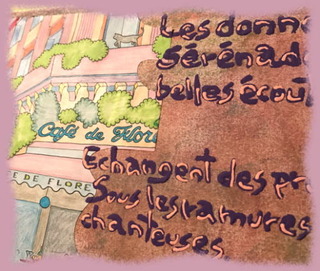 Les donn
sérénad
belles écou
Café de Flore
Echangent des pr
E DE FLORE
Sous les ramures
chanteuses